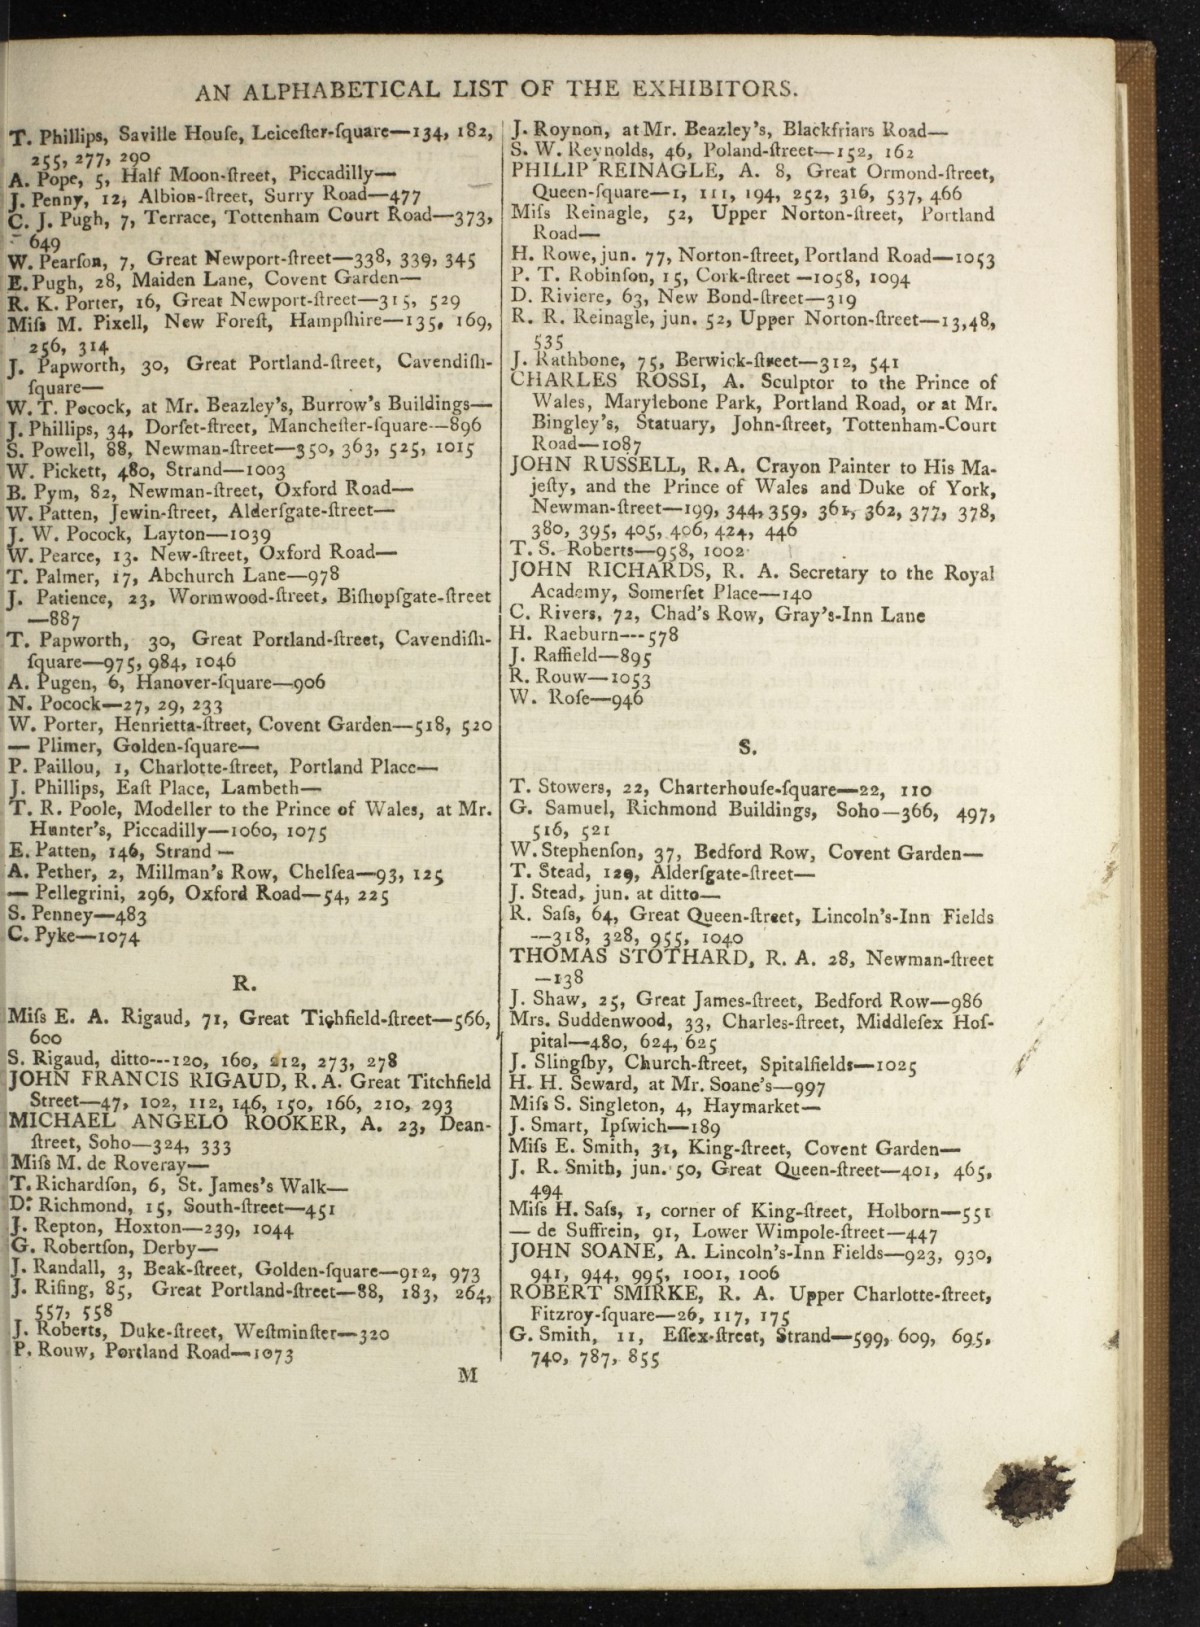 AN ALPHABETICAL LIST OF THE EXHIBITORS.
T. Phillips, Saville Houſe, Leiceſter-ſquare—134, 182,
255, 277, 290
A. Pope, 5, Half Moon-ſtreet, Piccadilly—
J. Penny, 12, Albion-ſtreet, Surry Road—477
C. J. Pugh, 7, Terrace, Tottenham Court Road—373,
649
W. Pearſon, 7, Great Newport-ſtreet—338, 339, 345
E. Pugh, 28, Maiden Lane, Covent Garden—
R. K. Porter, 16, Great Newport-ſtreet—315, 529
Miſs M. Pixell, New Foreſt, Hampſhire—135, 169,
256, 314
J. Papworth, 30, Great Portland-ſtreet, Cavendiſh-
ſquare—
W. T. Pocock, at Mr. Beazley's, Burrow's Buildings—
J. Phillips, 34, Dorſet-ſtreet, Mancheſter-ſquare---896
S. Powell, 88, Newman-ſtreet—350, 363, 525, 1015
W. Pickett, 480, Strand—1003
B. Pym, 82, Newman-ſtreet, Oxford Road—
W. Patten, Jewin-ſtreet, Alderſgate-ſtreet—
J. W. Pocock, Layton—1039
W. Pearce, 13. New-ſtreet, Oxford Road—
T. Palmer, 17, Abchurch Lane—978
J. Patience, 23, Wormwood-ſtreet, Biſhopſgate-ſtreet
—887
T. Papworth, 30, Great Portland-ſtreet, Cavendiſh-
ſquare—975, 984, 1046
A. Pugen, 6, Hanover-ſquare—906
N. Pocock—27, 29, 233
W. Porter, Henrietta-ſtreet, Covent Garden—518, 520
— Plimer, Golden-ſquare—
P. Paillou, 1, Charlotte-ſtreet, Portland Place—
J. Phillips, Eaſt Place, Lambeth—
T. R. Poole, Modeller to the Prince of Wales, at Mr.
Hunter's, Piccadilly—1060, 1075
E. Patten, 146, Strand —
A. Pether, 2, Millman's Row, Chelſea—93, 125
— Pellegrini, 296, Oxford Road—54, 225
S. Penney—483
C. Pyke—1074
R.
Miſs E. A. Rigaud, 71, Great Tichfield-ſtreet—566,
600
S. Rigaud, ditto---120, 160, 212, 273, 278
JOHN FRANCIS RIGAUD, R. A. Great Titchfield
Street—47, 102, 112, 146, 150, 166, 210, 293
MICHAEL ANGELO ROOKER, A. 23, Dean-
ſtreet, Soho—324, 333
Miſs M. de Roveray—
T. Richardſon, 6, St. James's Walk—
Dr. Richmond, 15, South-ſtreet—451
J. Repton, Hoxton—239, 1044
G. Robertſon, Derby—
J. Randall, 3, Beak-ſtreet, Golden-ſquare—912, 973
J. Riſing, 85, Great Portland-ſtreet—88, 183, 264,
557, 558
J. Roberts, Duke-ſtreet, Weſtminſter—320
P. Rouw, Portland Road—1073
M
J. Roynon, at Mr. Beazley's, Blackfriars Road—
S. W. Reynolds, 46, Poland-ſtreet—152, 162
PHILIP REINAGLE, A. 8, Great Ormond-ſtreet,
Queen-ſquare—1, 111, 194, 252, 316, 537, 466
Miſs Reinagle, 52, Upper Norton-ſtreet, Portland
Road—
H. Rowe, jun. 77, Norton-ſtreet, Portland Road—1053
P. T. Robinſon, 15, Cork-ſtreet —1058, 1094
D. Riviere, 63, New Bond-ſtreet—319
R. R. Reinagle, jun. 52, Upper Norton-ſtreet—13, 48,
535
J. Rathbone, 75, Berwick-ſtreet—312, 541
CHARLES ROSSI, A. Sculptor to the Prince of
Wales, Marylebone Park, Portland Road, or at Mr.
Bingley's, Statuary, John-ſtreet, Tottenham-Court
Road—1087
JOHN RUSSELL, R. A. Crayon Painter to His Ma-
jeſty, and the Prince of Wales and Duke of York,
Newman-ſtreet—199, 344, 359, 361, 362, 377, 378,
380, 395, 405, 406, 424, 446
T. S. Roberts—958, 1002
JOHN RICHARDS, R. A. Secretary to the Royal
Academy, Somerſet Place—140
C. Rivers, 72, Chad's Row, Gray's-Inn Lane
H. Raeburn---578
J. Raffield—895
R. Rouw—1053
W. Roſe—946
S.
T. Stowers, 22, Charterhouſe-ſquare—22, 110
G. Samuel, Richmond Buildings, Soho—366, 497,
516, 521
W. Stephenſon, 37, Bedford Row, Covent Garden—
T. Stead, 129, Alderſgate-ſtreet—
J. Stead, jun. at ditto—
R. Saſs, 64, Great Queen-ſtreet, Lincoln's-Inn Fields
—318, 328, 955, 1040
THOMAS STOTHARD, R. A. 28, Newman-ſtreet
—138
J. Shaw, 25, Great James-ſtreet, Bedford Row—986
Mrs. Suddenwood, 33, Charles-ſtreet, Middleſex Hoſ-
pital—480, 624, 625
J. Slingſby, Church-ſtreet, Spitalfields—1025
H. H. Seward, at Mr. Soane's—997
Miſs S. Singleton, 4, Haymarket—
J. Smart, Ipſwich—189
Miſs E. Smith, 31, King-ſtreet, Covent Garden—
J. R. Smith, jun. 50, Great Queen-ſtreet—401, 465,
494
Miſs H. Saſs, 1, corner of King-ſtreet, Holborn—551
— de Suffrein, 91, Lower Wimpole-ſtreet—447
JOHN SOANE, A. Lincoln's-Inn Fields—923, 930,
941, 944, 995, 1001, 1006
ROBERT SMIRKE, R. A. Upper Charlotte-ſtreet,
Fitzroy-ſquare—26, 117, 175
G. Smith, 11, Eſſex-ſtreet, Strand—599, 609, 695,
740, 787, 855